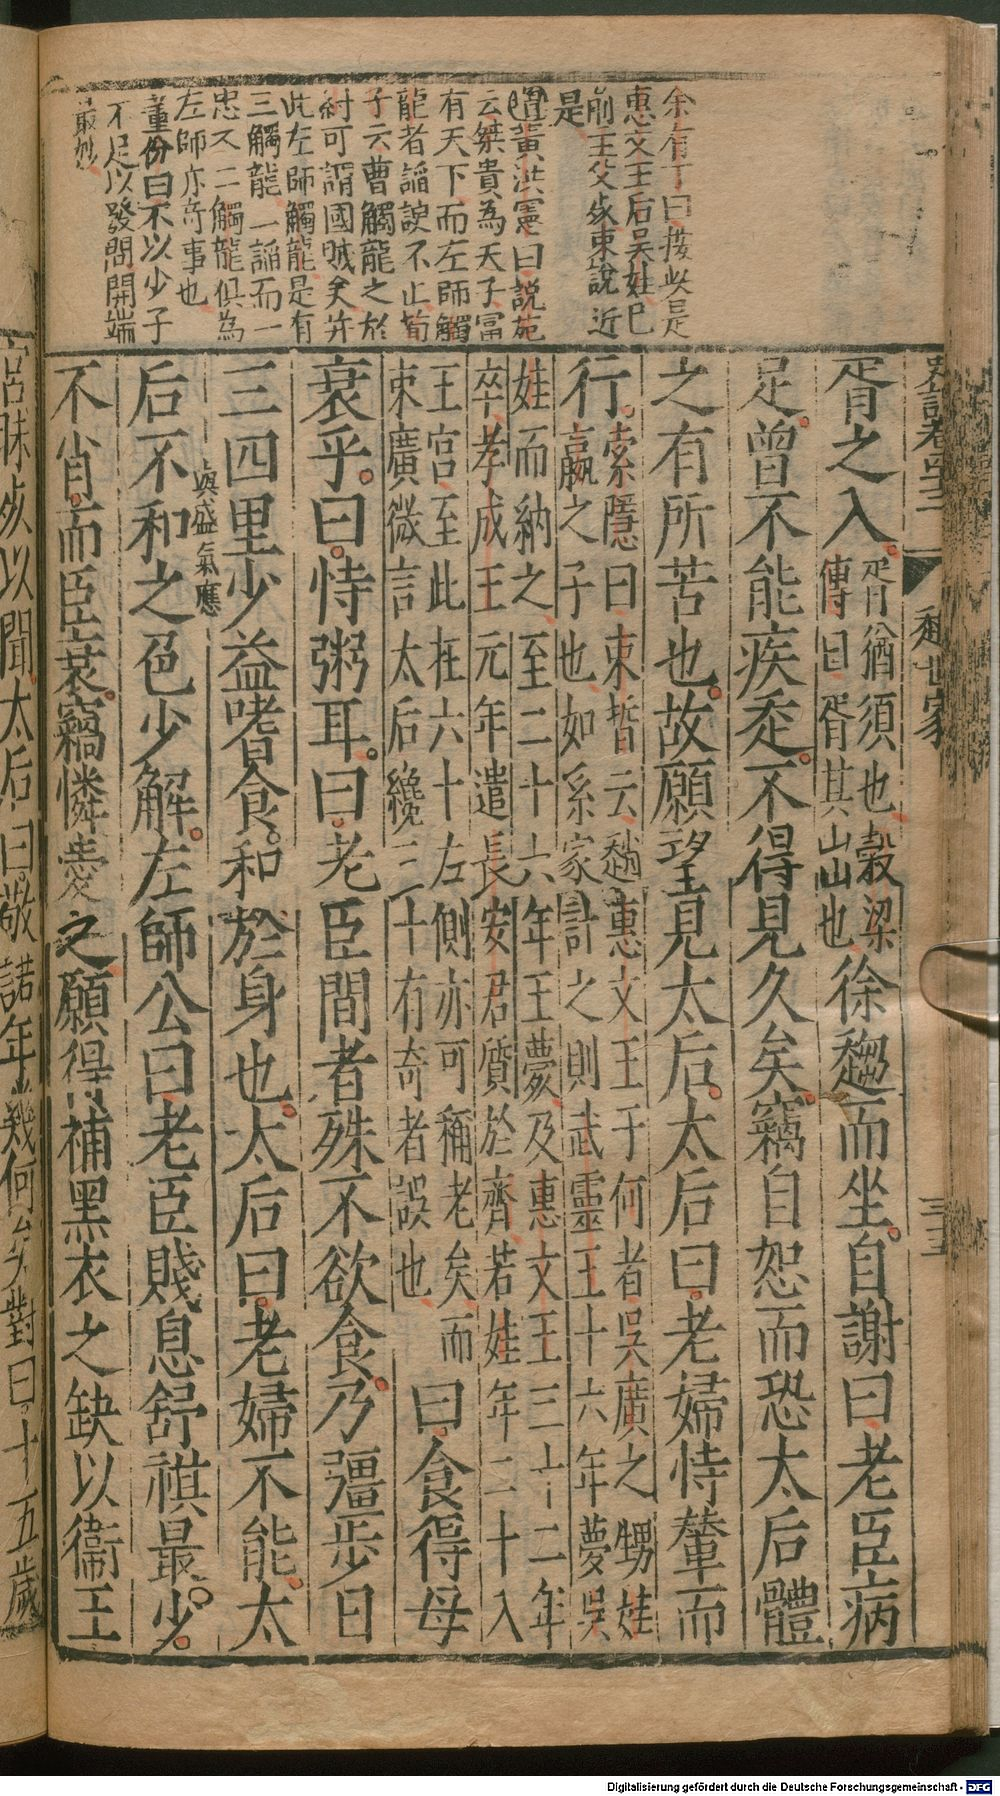 余有丁曰按此是
惠文王后吳娃已
前王父歿東說近
是
黃洪憲曰說苑
云桀貴為天子富
有天下而左師觸
龍者謟諛不止荀
子云曹觸龍之於
紂可謂國賊矣并
此左師觸龍是有
三觸龍一謟而一
忠又二觸龍俱為
左師亦奇事也
董份曰不以少子
不足以發問開端
最妙
史記卷四十三
趙世家
三五
胥之入。胥猶須也、穀梁
傳曰胥其出也、徐趨而坐。自謝曰老臣病
足。曾不能疾走。不得見久矣。竊自恕而恐太后體
之有所苦也。故願望見太后。太后曰。老婦恃輦而
行。索隱曰束晳云趙惠文王于何者吳廣之甥娃
嬴之子也、如系家計之則武靈王十六年夢吳
娃而納之、至二十六年王薨及惠文王三十二年
卒、孝成王元年遣長安君質於齊、若娃年二十入
王宮至此在六十左側亦可稱老矣、而
束廣微言太后纔三十有奇者誤也、曰食得母
衰乎。曰。恃粥耳。曰。老臣間者殊不欲食。乃彊步日
三四里少益嗜食。和於身也。太后曰。老婦不能。太
與盛氣應
后不和之色少解。左師公曰。老臣賤息舒祺最少。
不肖。而臣衰。竊憐愛之。願得補黑衣之缺以衞王
宮昧死以聞。太后曰。敬諾年幾何矣對曰十五歲
Digitalisierung gefördert durch die Deutsche Forschungsgemeinschaft - DFG